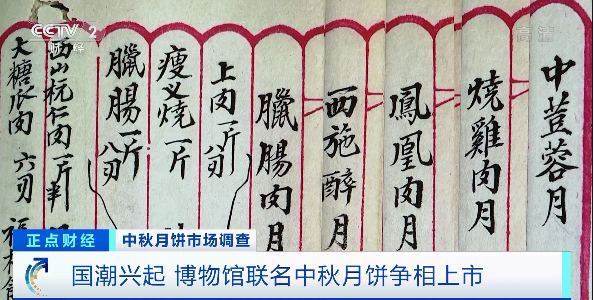 CCTV 2
财经
高清
中荳蓉月
燒雞肉月
鳳凰肉月
西施醉月
臘腸肉月
上肉一斤八刃
瘦义燒一斤
臘腸一斤八刃
山杬仁肉一斤半
大糖瓜肉 六刃
正点财经
中秋月饼市场调查
国潮兴起 博物馆联名中秋月饼争相上市